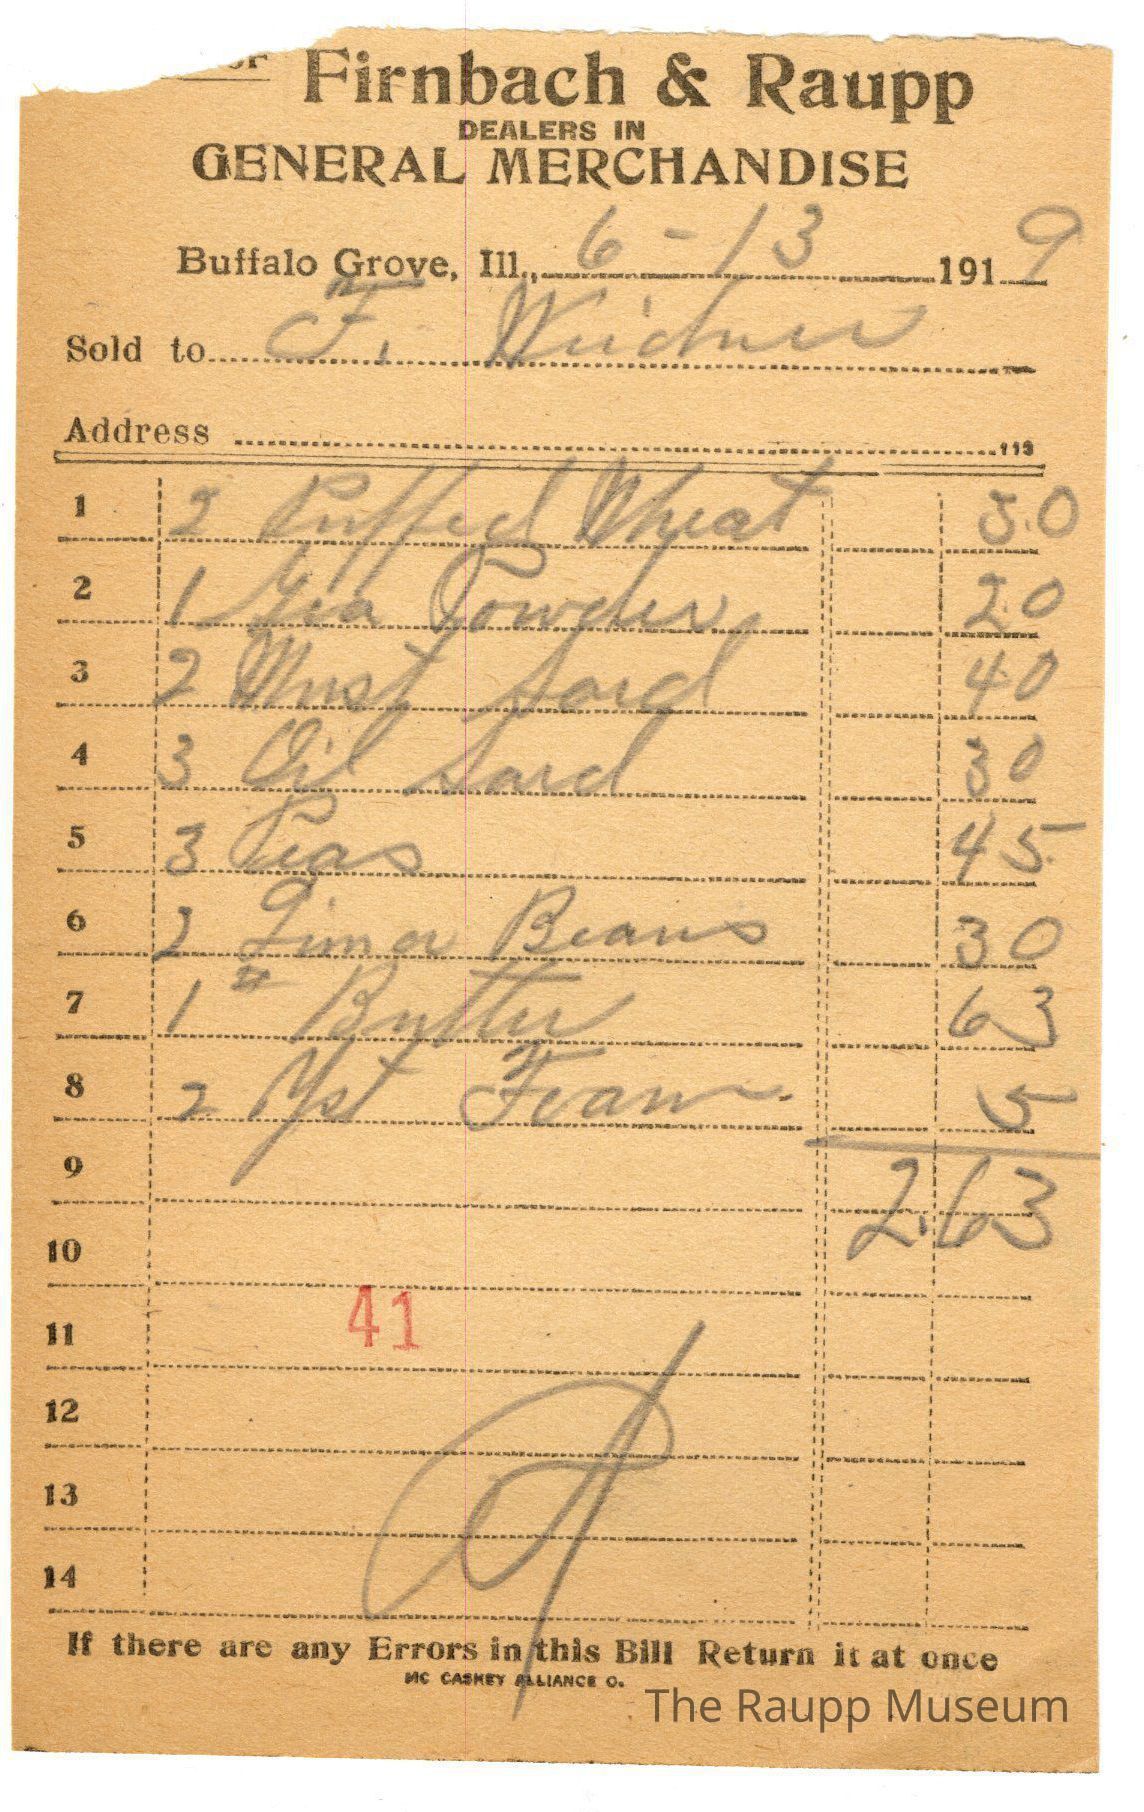 or Firnbach & Raupp
DEALERS IN
GENERAL MERCHANDISE
Buffalo Grove, Ill., 6-13 1919
Sold to F. Weidner
Address 113
1 2 Puffed Wheat 30
2 1 Powder 20
3 2 Must Sard 40
4 3 Oil Sard 30
5 3 Peas 45
6 2 Lima Beans 30
7 1 # Butter 63
8 2 Yst Foam 5
9 2.63
10
41
11
12
13
14
If there are any Errors in this Bill Return it at once
MC CASKEY ALLIANCE O.
The Raupp Museum